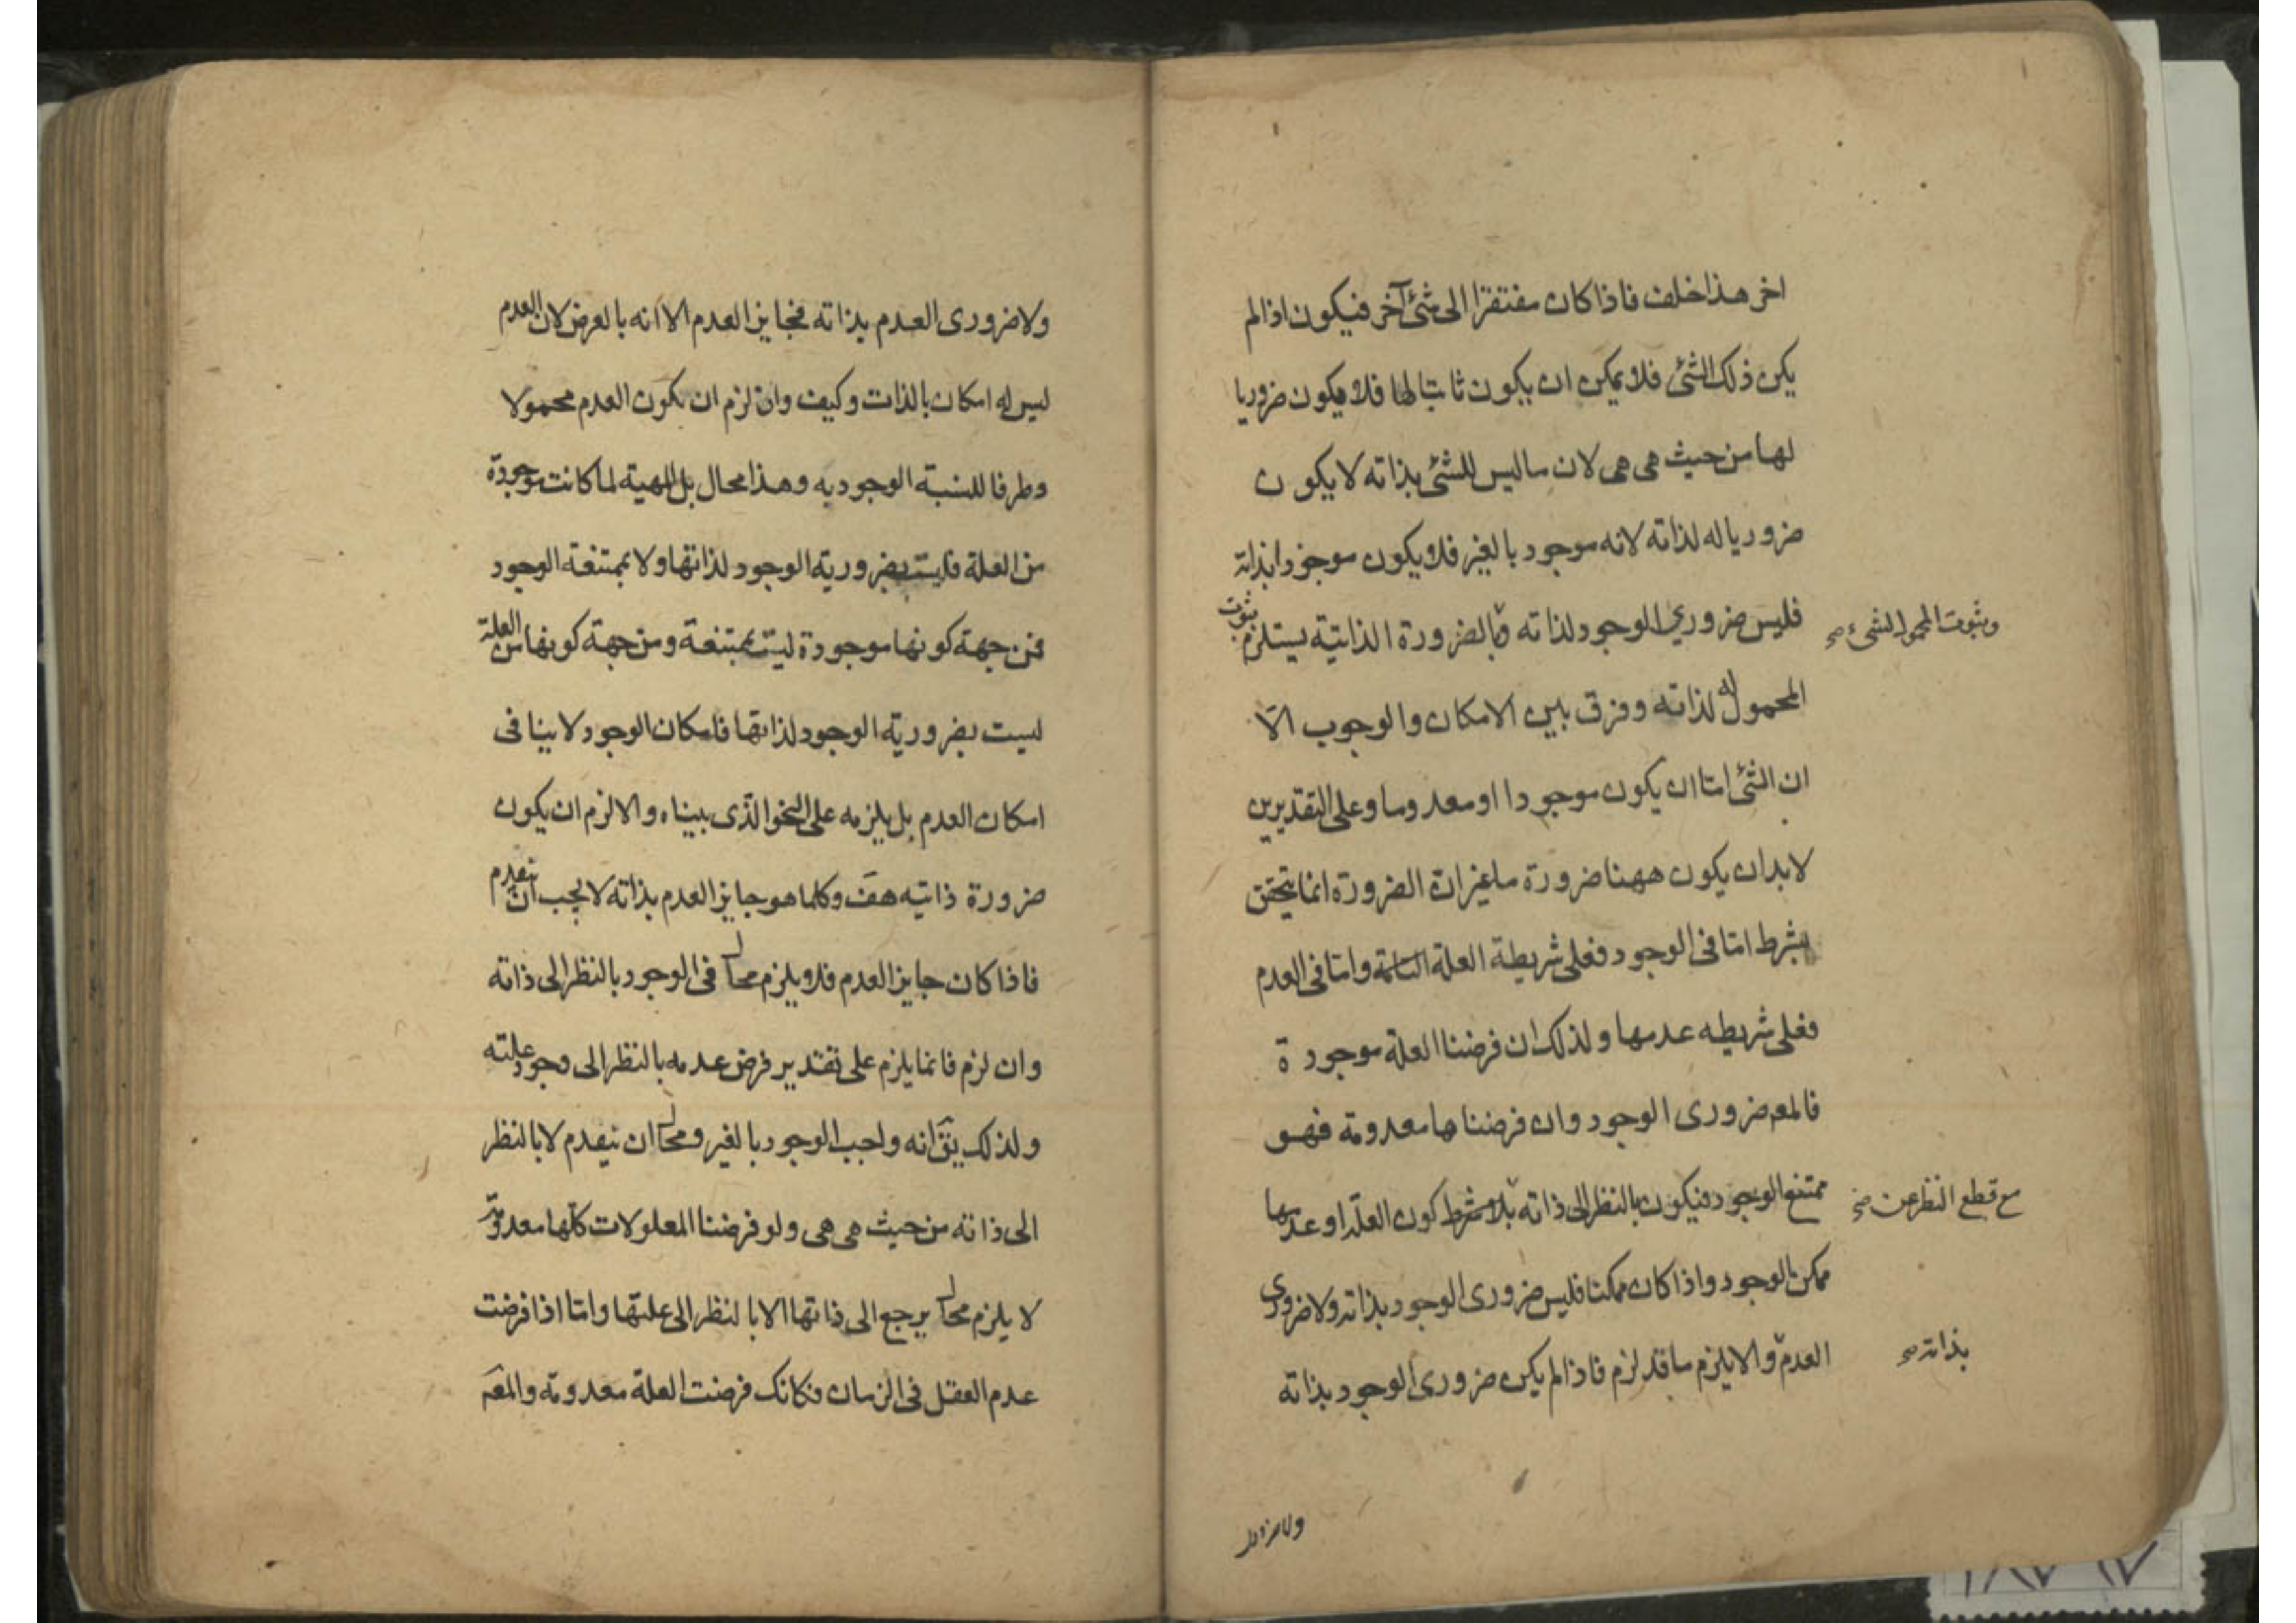 اخر هذا خلف فاذا كان مفتقرا الى شئ آخر فيكون اذا لم
يكن ذلك الشئ فلا يمكن ان يكون ثابتا لها فلا يكون ضروريا
لها من حيث هى هى لان ما ليس للشئ بذاته لا يكون
ضروريا له لذاته لانه موجود بالغير فلا يكون موجودا بذاته
فليس ضروري الوجود لذاته فبالضرورة الذاتية يستلزم ثبوت
وثبوت المحمول لشئ صح
المحمول له لذاته وفرق بين الامكان والوجوب الا
ان الشئ اما ان يكون موجودا او معدوما وعلى التقديرين
لابد ان يكون ههنا ضرورة ما غير ان الضرورة انما يتحقق
بشرط اما فى الوجود فعلى شريطة العلة التامة واما فى العدم
فعلى شريطه عدمها ولذلك ان فرضنا العلة موجودة
فالمعه ضرورى الوجود وان فرضناها معدومة فهو
ممتنع الوجود فيكون بالنظر الى ذاته بلا شرط كون العلة او عدمها
مع قطع النظر عن صح
ممكن الوجود واذا كان ممكنا فليس ضرورى الوجود بذاته ولا ضرورى
العدم والا يلزم ما قد لزم فاذا لم يكن ضرورى الوجود بذاته
بذاته صح
ولا ضرورى
ولا ضرورى العدم بذاته فجايز العدم الا انه بالعرض لان العدم
ليس له امكان بالذات وكيف وان لزم ان يكون العدم محمولا
وطرفا للنسبة الوجوديه وهذا محال بل المهية لما كانت موجودة
من العلة فليست بضرورية الوجود لذاتها ولا بممتنعة الوجود
فمن جهة كونها موجودة ليست بممتنعة ومن جهة كونها من العلة
ليست بضرورية الوجود لذاتها فامكان الوجود لا ينافى
امكان العدم بل يلزمه على النحو الذى بيناه والا لزم ان يكون
ضرورة ذاتيه هف وكلما هو جايز العدم بذاته لا يجب ان ينعدم
فاذا كان جايز العدم فلا يلزم محال فى الوجود بالنظر الى ذاته
وان لزم فانما يلزم على تقدير فرض عدمه بالنظر الى وجود علته
ولذلك يق انه واجب الوجود بالغير ومحال ان ينعدم لا بالنظر
الى ذاته من حيث هى هى ولو فرضنا المعلولات كلها معدومة
لا يلزم محال يرجع الى ذاتها الا بالنظر الى علتها واما اذا فرضت
عدم العقل فى الزمان فكانك فرضت العلة معدومة والمعه